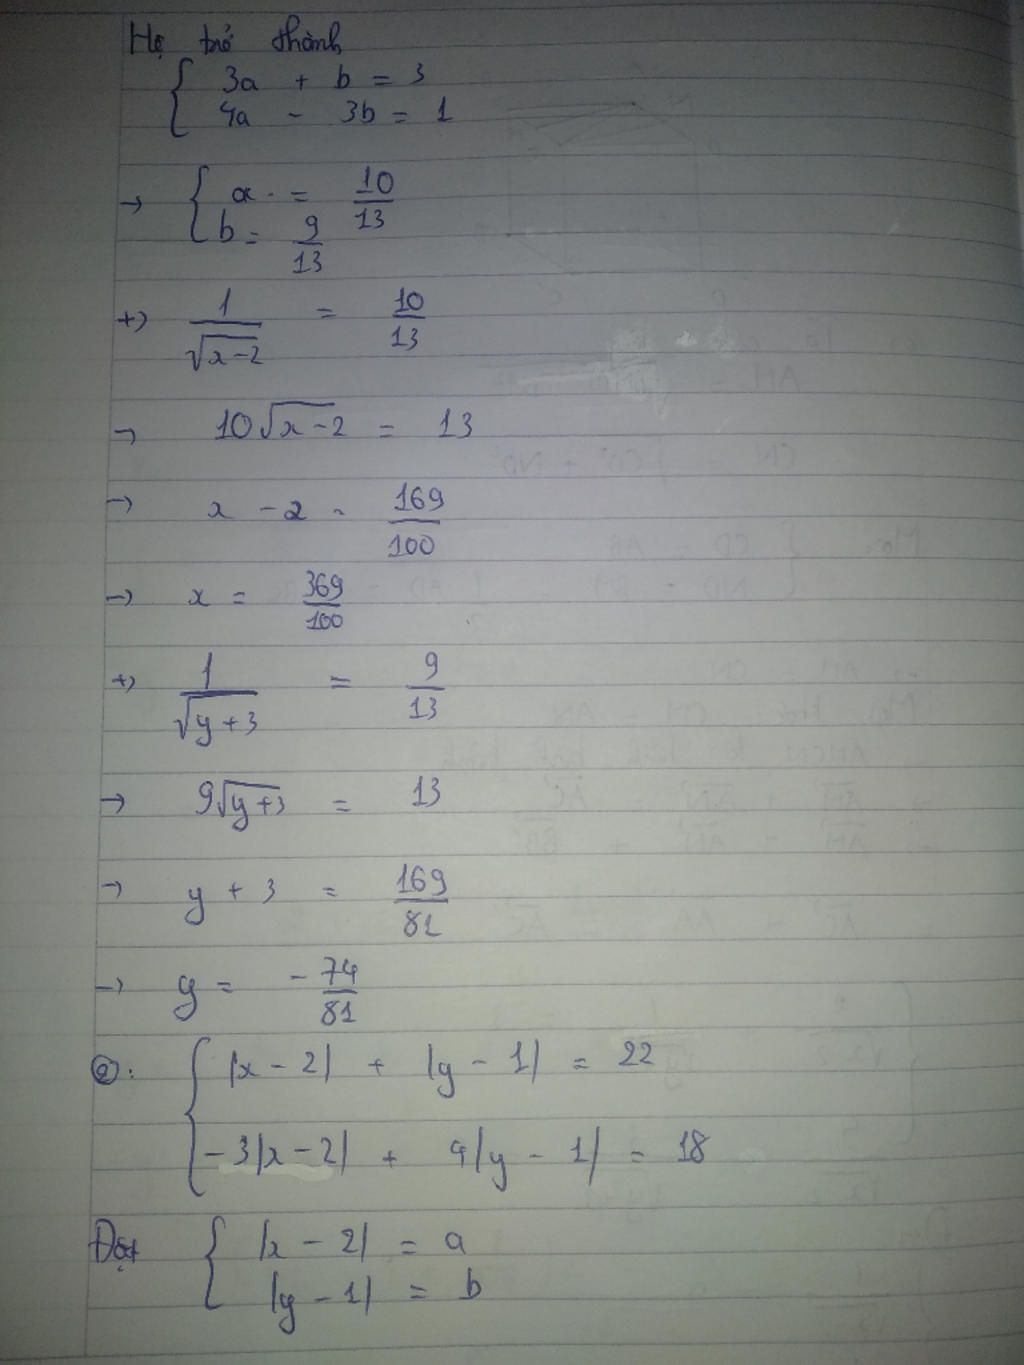 Hệ trở thành
{ 3a + b = 3
4a - 3b = 1
→ { a = 10/13
b = 9/13
+) 1/√(x-2) = 10/13
→ 10√(x-2) = 13
→ x - 2 = 169/100
→ x = 369/100
+) 1/√(y+3) = 9/13
→ 9√(y+3) = 13
→ y + 3 = 169/81
→ y = -74/81
②. { |x - 2| + |y - 1| = 22
-3|x - 2| + 4|y - 1| = 18
Đặt { |x - 2| = a
|y - 1| = b